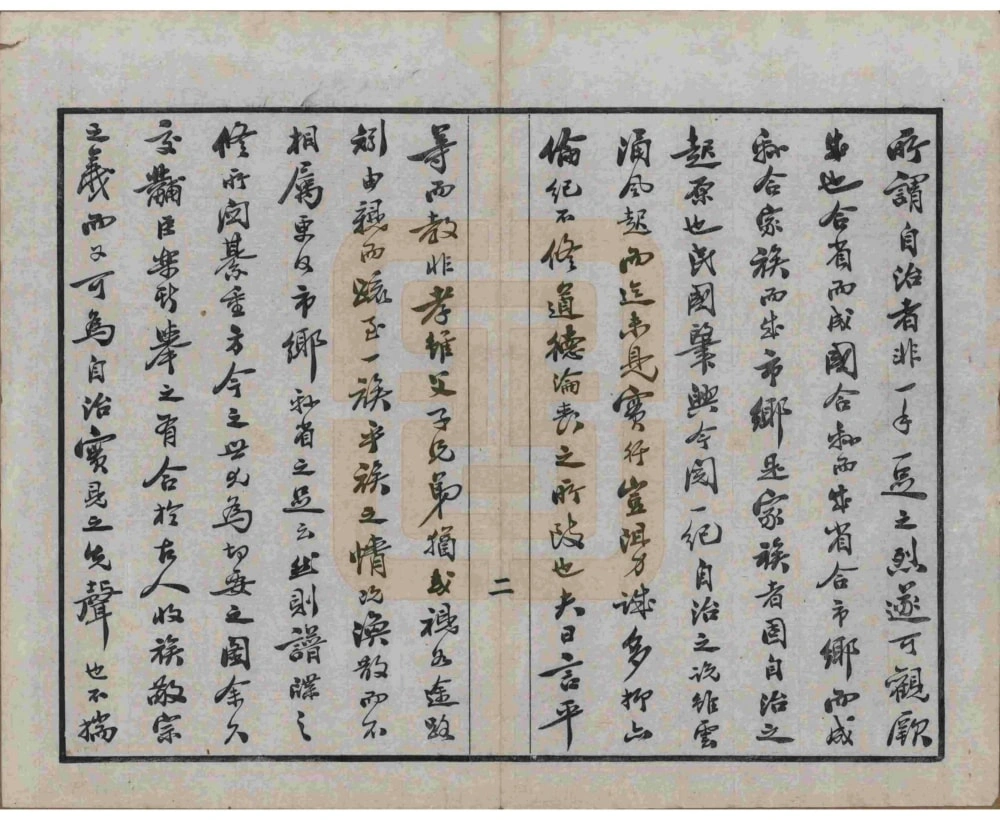 所謂自治者非一手一足之烈遂可觀厥
成也合省而成國合縣而成省合市鄉而成
縣合家族而成市鄉是家族者固自治之
起原也民國肇興今閱一紀自治之說雖雲
涌風起而迄未見實行豈阻力誠多抑亦
倫紀不修道德淪喪之所致也夫日言平
二
等而教非孝雖父子兄弟猶或視如塗路
矧由親而疏至一族乎族之情既渙散而不
相屬更何市鄉縣省之足云然則譜牒之
修所關綦重方今之世尤為切要之圖余久
交黼臣樂斯舉之有合於古人收族敬宗
之義而又可為自治實見之先聲也不揣